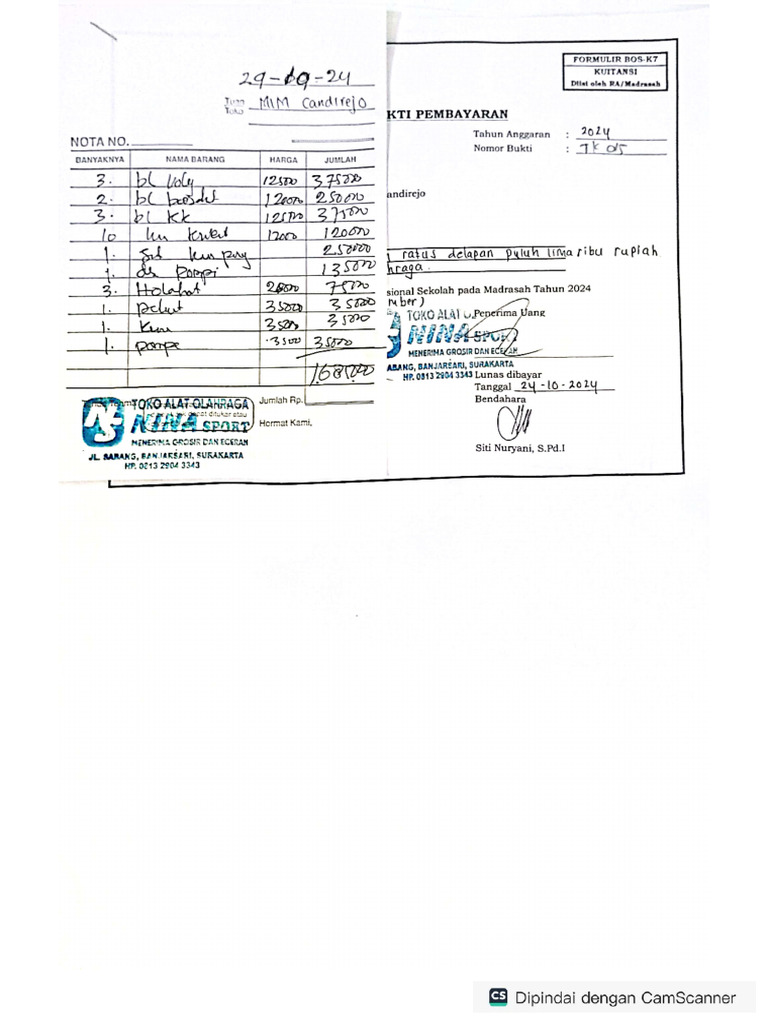 29-09-24
Tuan
Toko
MIM Candirejo
NOTA NO.
BANYAKNYA NAMA BARANG HARGA JUMLAH
3. bl Voly 125000 375000
2. bl 250000
3. bl KK 125000 375000
10 12000 120000
1. 250000
1. 135000
3. Holahot 75000
1. 35000 35000
1. 35000
1. pompa 35000
1.685.000
Jumlah Rp.
Hormat Kami,
TOKO ALAT OLAHRAGA
NINA SPORT
MENERIMA GROSIR DAN ECERAN
JL. SABANG, BANJARSARI, SURAKARTA
HP. 0813 2904 3343
FORMULIR BOS-K7
KUITANSI
Diisi oleh RA/Madrasah
KTI PEMBAYARAN
Tahun Anggaran : 2024
Nomor Bukti : TK 05
andirejo
ratus delapan puluh lima ribu rupiah
hraga.
sional Sekolah pada Madrasah Tahun 2024
mber)
Penerima Uang
TOKO ALAT
NINA SPORT
MENERIMA GROSIR DAN ECERAN
ABANG, BANJARSARI, SURAKARTA
HP. 0813 2904 3343
Lunas dibayar
Tanggal 24-10-2024
Bendahara
Siti Nuryani, S.Pd.I
CS Dipindai dengan CamScanner